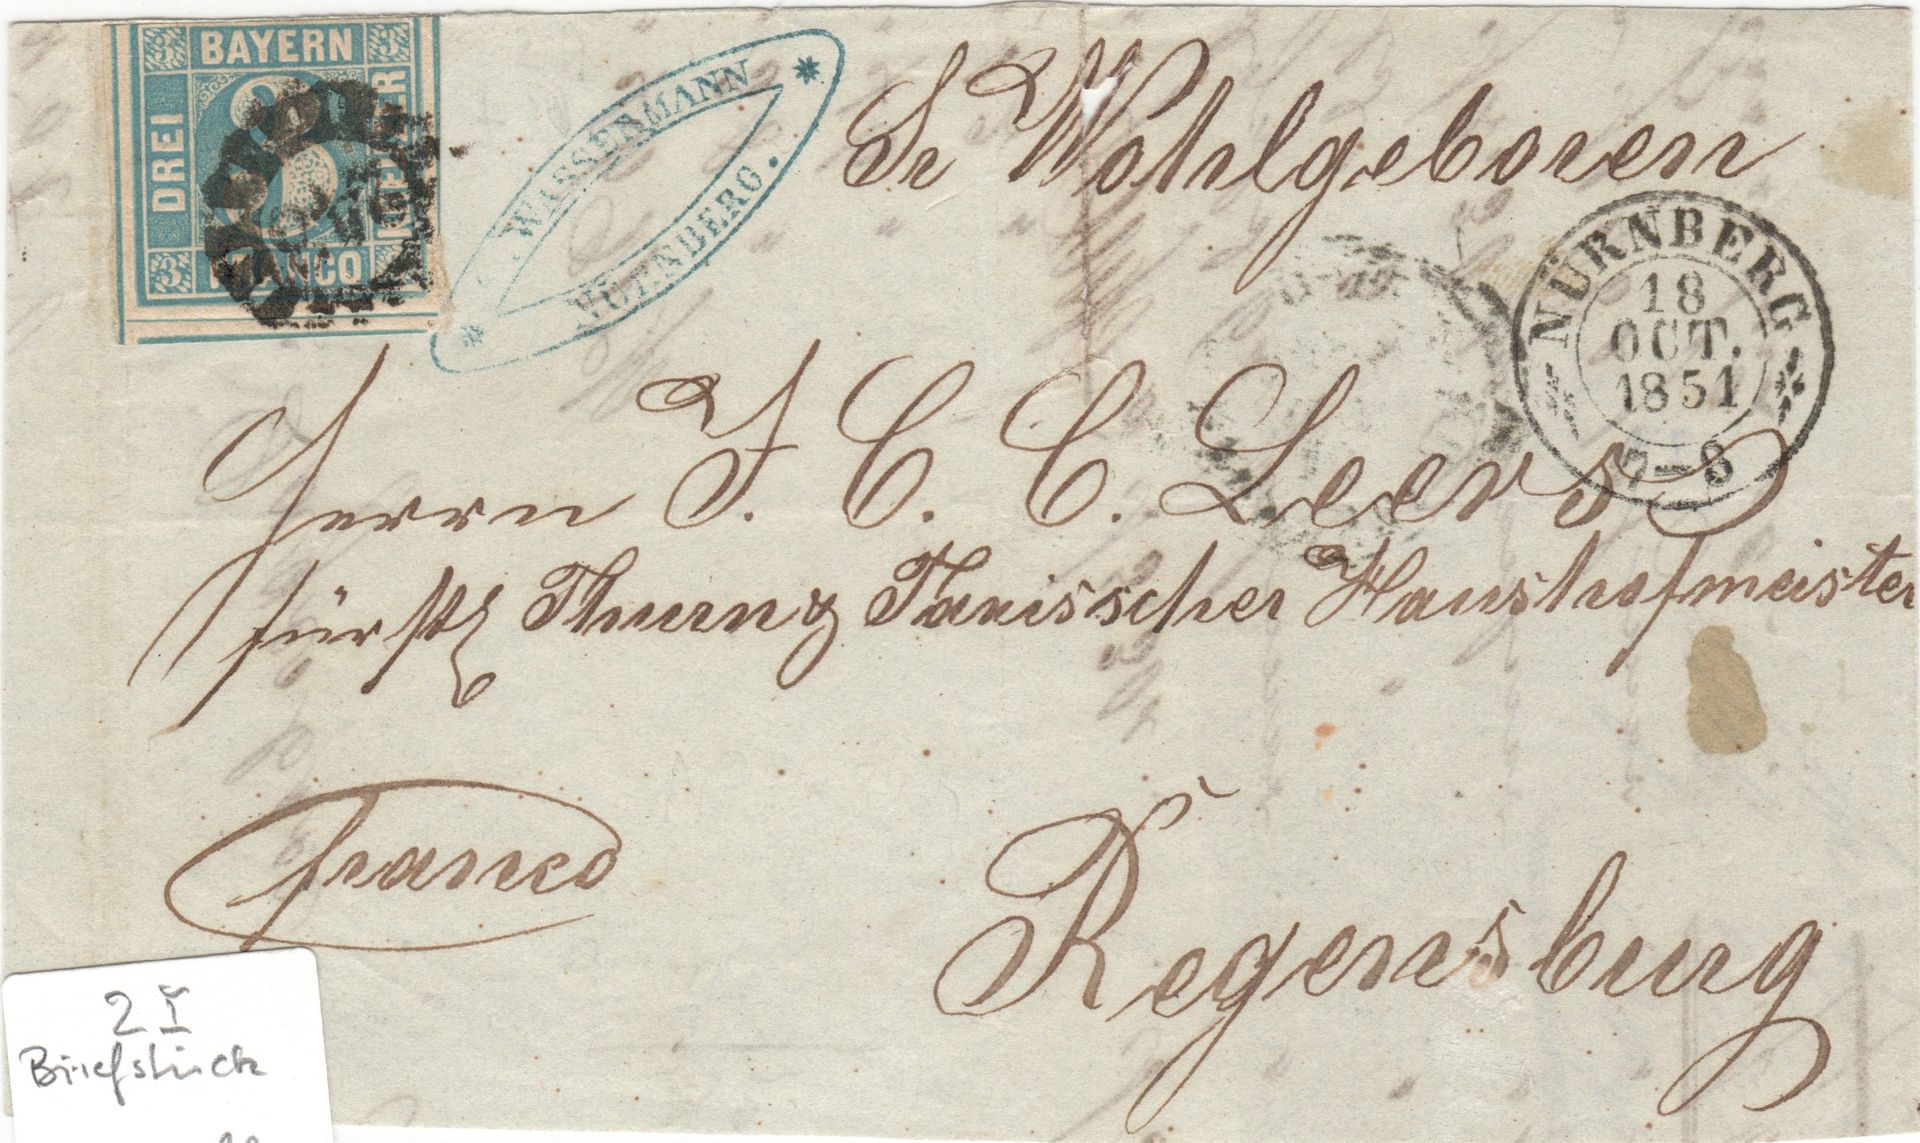 3 BAYERN 3
DREI
KREUZER
3 FRANCO
WAISENMANN
NÜRNBERG.
Sr Wohlgeboren
NÜRNBERG
18
OCT.
1851
7-8
Herrn J. C. C. Leers
fürstl Thurn & Taxisscher Haushofmeister
franco
Regensburg
2 I
Briefstück